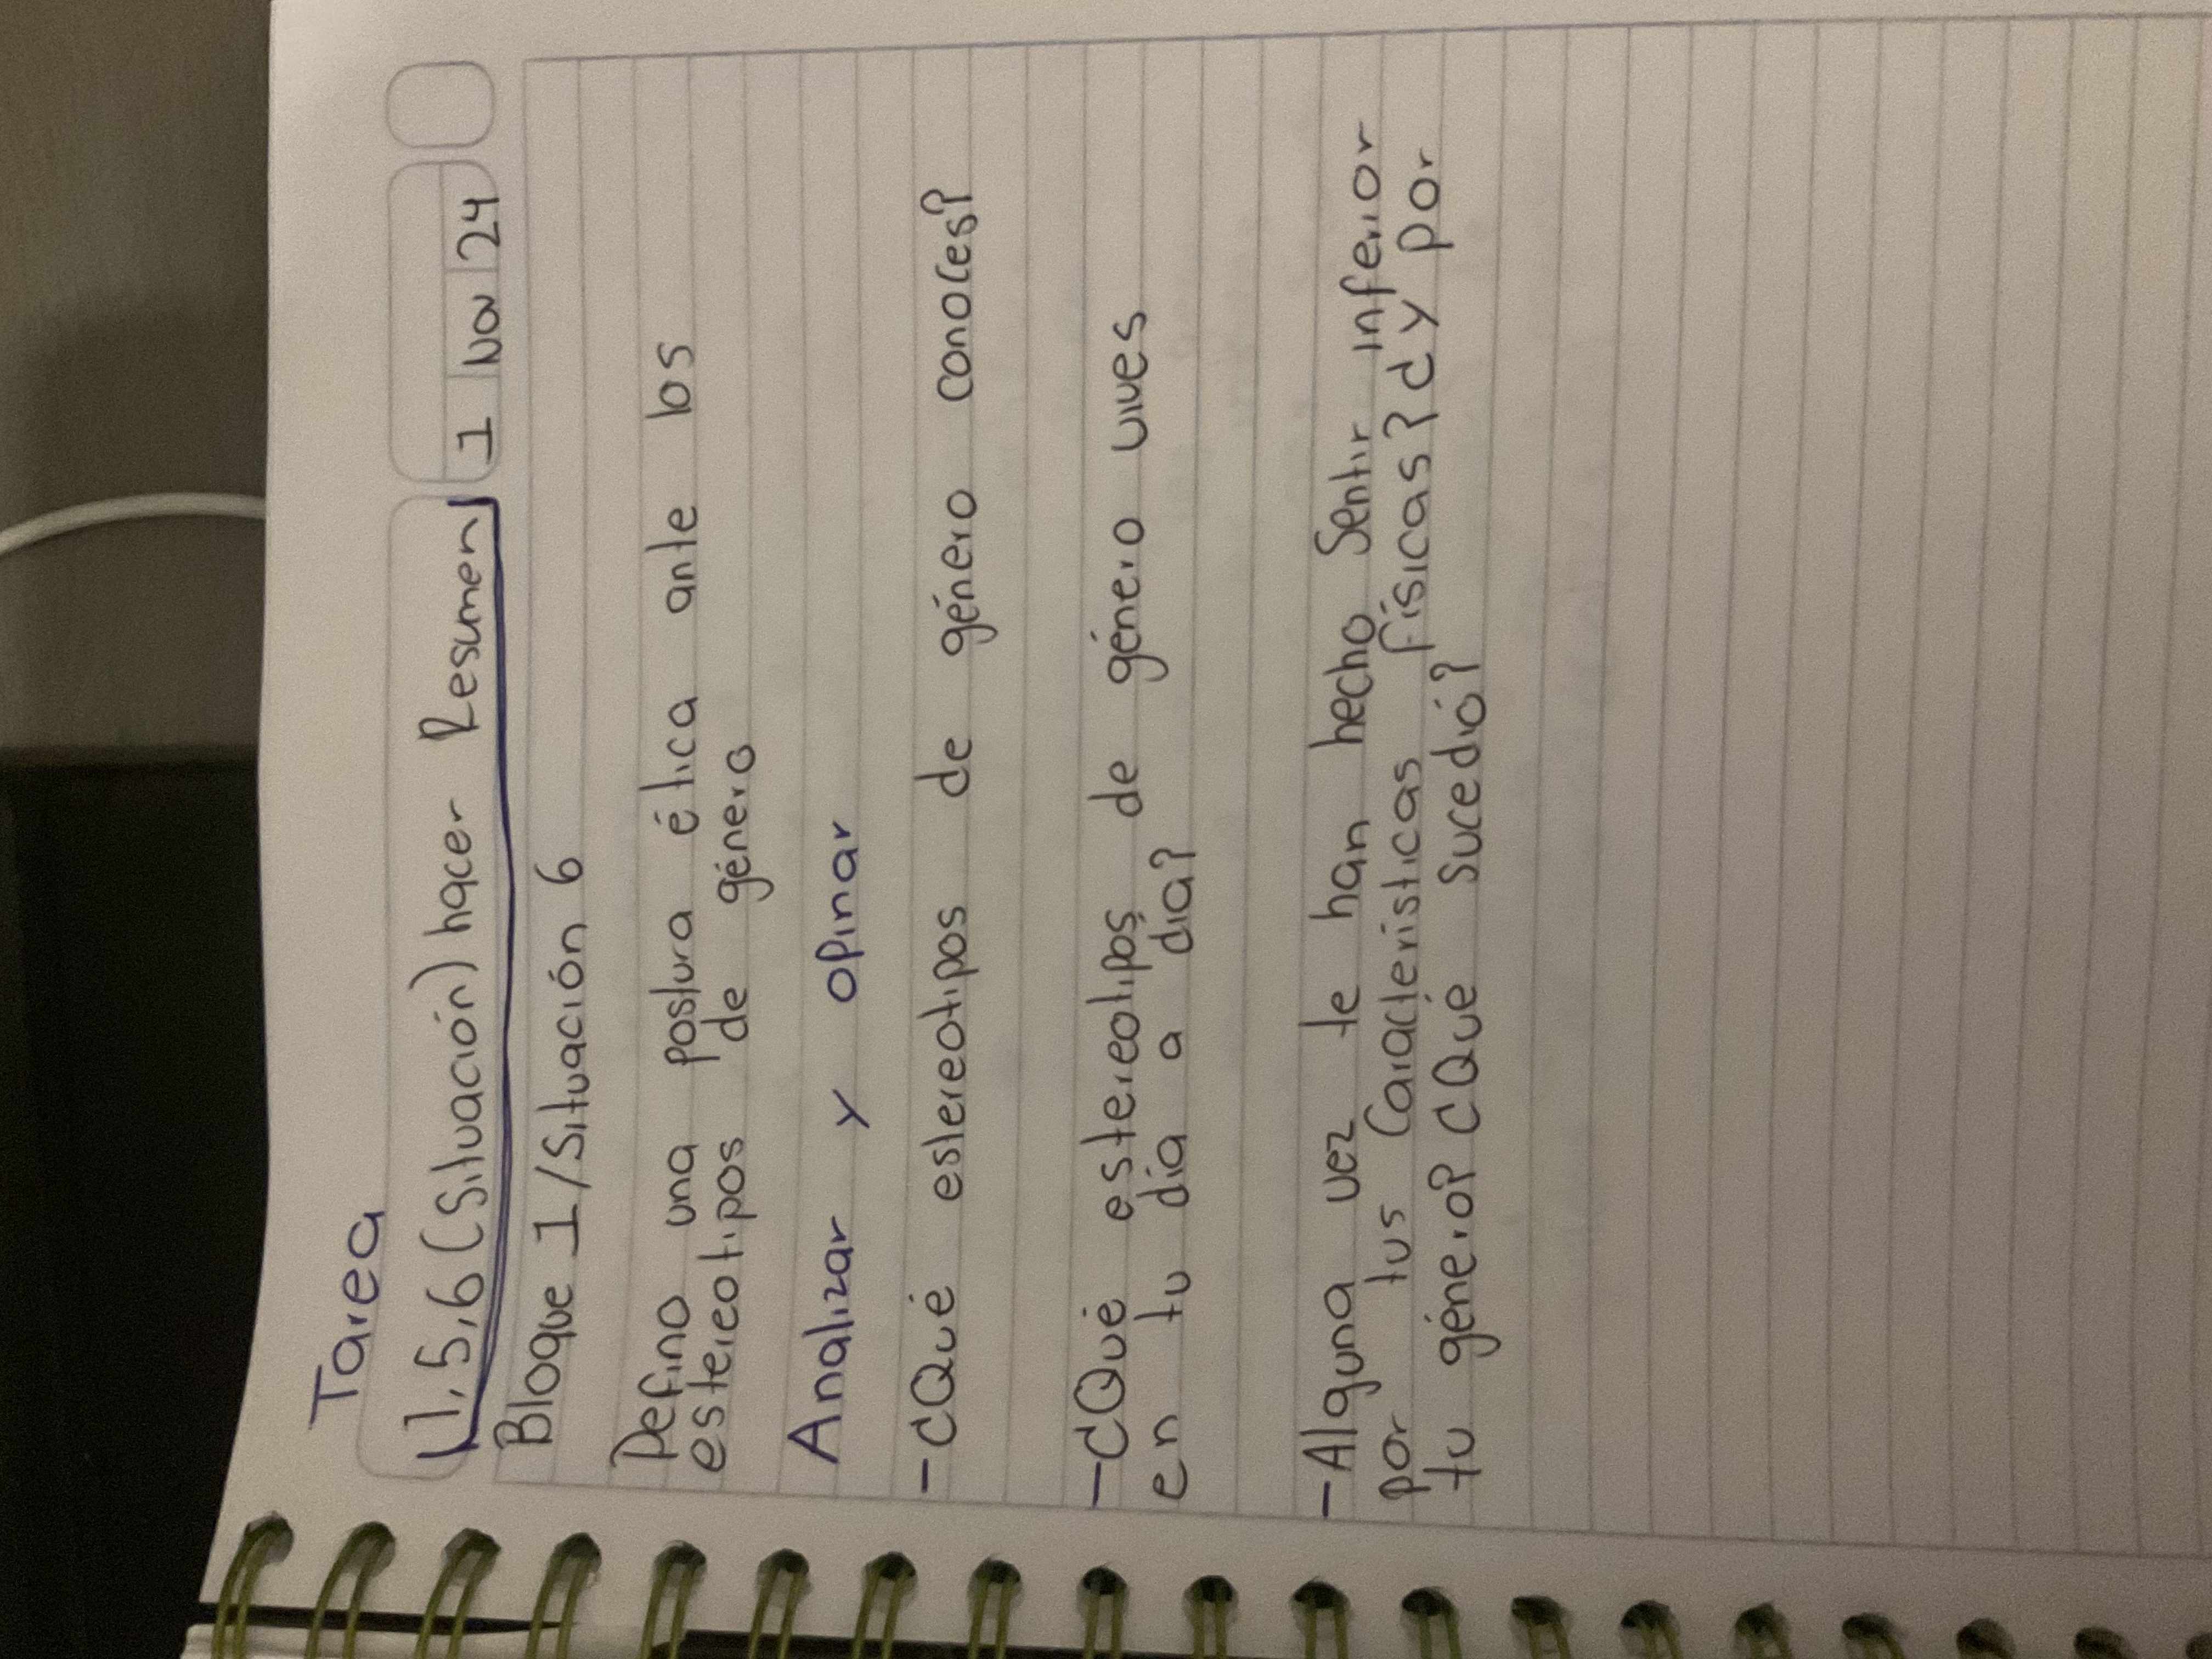 Tarea
1,5,6 (Situación) hacer Resumen
1 Nov 24
Bloque 1/Situación 6
Defino una postura ética ante los
estereotipos de género
Analizar y opinar
-¿Qué estereotipos de género conoces?
-¿Qué estereotipos de género vives
en tu día a día?
-Alguna vez te han hecho Sentir inferior
por tus Características físicas? ¿y por
tu género? ¿Qué sucedió?